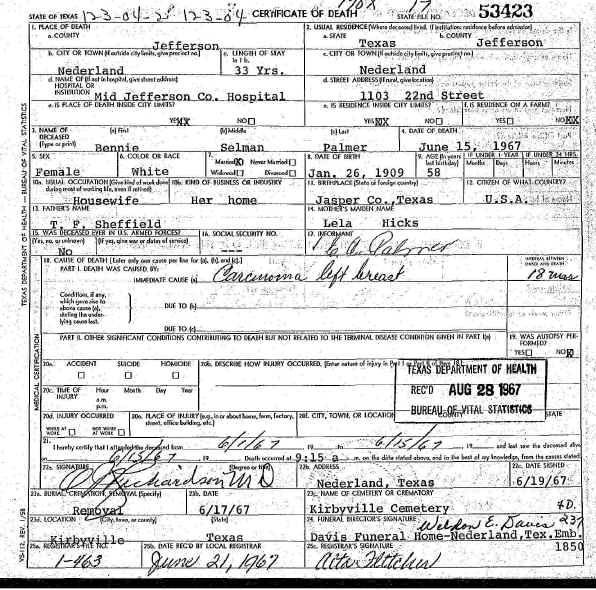 STATE OF TEXAS 123-04-2 123-04 CERTIFICATE OF DEATH STATE FILE NO. 53423
1. PLACE OF DEATH
a. COUNTY Jefferson
2. USUAL RESIDENCE (Where deceased lived. If institution: residence before admission)
a. STATE Texas b. COUNTY Jefferson
b. CITY OR TOWN (If outside city limits, give precinct no.) Nederland
c. LENGTH OF STAY in 1b. 33 Yrs.
c. CITY OR TOWN (If outside city limits, give precinct no.) Nederland
d. NAME OF (If not in hospital, give street address) HOSPITAL OR INSTITUTION Mid Jefferson Co. Hospital
d. STREET ADDRESS (If rural, give location) 1103 22nd Street
e. IS PLACE OF DEATH INSIDE CITY LIMITS? YES XX NO
e. IS RESIDENCE INSIDE CITY LIMITS? YES XX NO
f. IS RESIDENCE ON A FARM? YES NO XX
3. NAME OF DECEASED (Type or print)
(a) First Bennie (b) Middle Selman (c) Last Palmer
4. DATE OF DEATH June 15, 1967
5. SEX Female
6. COLOR OR RACE White
7. Married X Never Married Widowed Divorced
8. DATE OF BIRTH Jan. 26, 1909
9. AGE (In years last birthday) 58
IF UNDER 1 YEAR Months Days
IF UNDER 24 HRS. Hours Minutes
10a. USUAL OCCUPATION (Give kind of work done during most of working life, even if retired) Housewife
10b. KIND OF BUSINESS OR INDUSTRY Her home
11. BIRTHPLACE (State or foreign country) Jasper Co., Texas
12. CITIZEN OF WHAT COUNTRY? U.S.A.
13. FATHER'S NAME T. F. Sheffield
14. MOTHER'S MAIDEN NAME Lela Hicks
15. WAS DECEASED EVER IN U.S. ARMED FORCES? (Yes, no, or unknown) (If yes, give war or dates of service) No
16. SOCIAL SECURITY NO. ---
17. INFORMANT Palmer
18. CAUSE OF DEATH [Enter only one cause per line for (a), (b), and (c).]
INTERVAL BETWEEN ONSET AND DEATH
PART I. DEATH WAS CAUSED BY:
IMMEDIATE CAUSE (a) Carcinoma left breast 18 mos
Conditions, if any, which gave rise to above cause (a), stating the underlying cause last.
DUE TO (b)
DUE TO (c)
PART II. OTHER SIGNIFICANT CONDITIONS CONTRIBUTING TO DEATH BUT NOT RELATED TO THE TERMINAL DISEASE CONDITION GIVEN IN PART I(a)
19. WAS AUTOPSY PERFORMED? YES NO X
20a. ACCIDENT SUICIDE HOMICIDE
20b. DESCRIBE HOW INJURY OCCURRED. (Enter nature of injury in Part I or Part II of item 18.)
20c. TIME OF INJURY Hour a.m. p.m. Month Day Year
20d. INJURY OCCURRED WHILE AT WORK NOT WHILE AT WORK
20e. PLACE OF INJURY (e.g., in or about home, farm, factory, street, office building, etc.)
20f. CITY, TOWN, OR LOCATION COUNTY STATE
TEXAS DEPARTMENT OF HEALTH
REC'D AUG 28 1967
BUREAU OF VITAL STATISTICS
21. I hereby certify that I attended the deceased from 6/1/67 19 to 6/15/67 19 and last saw the deceased alive
on 6/15/67 19 Death occurred at 9:15 a m. on the date stated above, and to the best of my knowledge, from the causes stated.
22a. SIGNATURE (Degree or title) Richardson M D
22b. ADDRESS Nederland, Texas
22c. DATE SIGNED 6/19/67
23a. BURIAL, CREMATION, REMOVAL (Specify) Removal
23b. DATE 6/17/67
23c. NAME OF CEMETERY OR CREMATORY Kirbyville Cemetery
23d. LOCATION (City, town, or county) (State) Kirbyville Texas
24. FUNERAL DIRECTOR'S SIGNATURE Weldon E. Davis F.D. 237
Davis Funeral Home-Nederland, Tex. Emb. 1850
25a. REGISTRAR'S FILE NO. 1-463
25b. DATE REC'D BY LOCAL REGISTRAR June 21, 1967
25c. REGISTRAR'S SIGNATURE Fletcher
TEXAS DEPARTMENT OF HEALTH — BUREAU OF VITAL STATISTICS
MEDICAL CERTIFICATION
VS-112, REV. 1/58